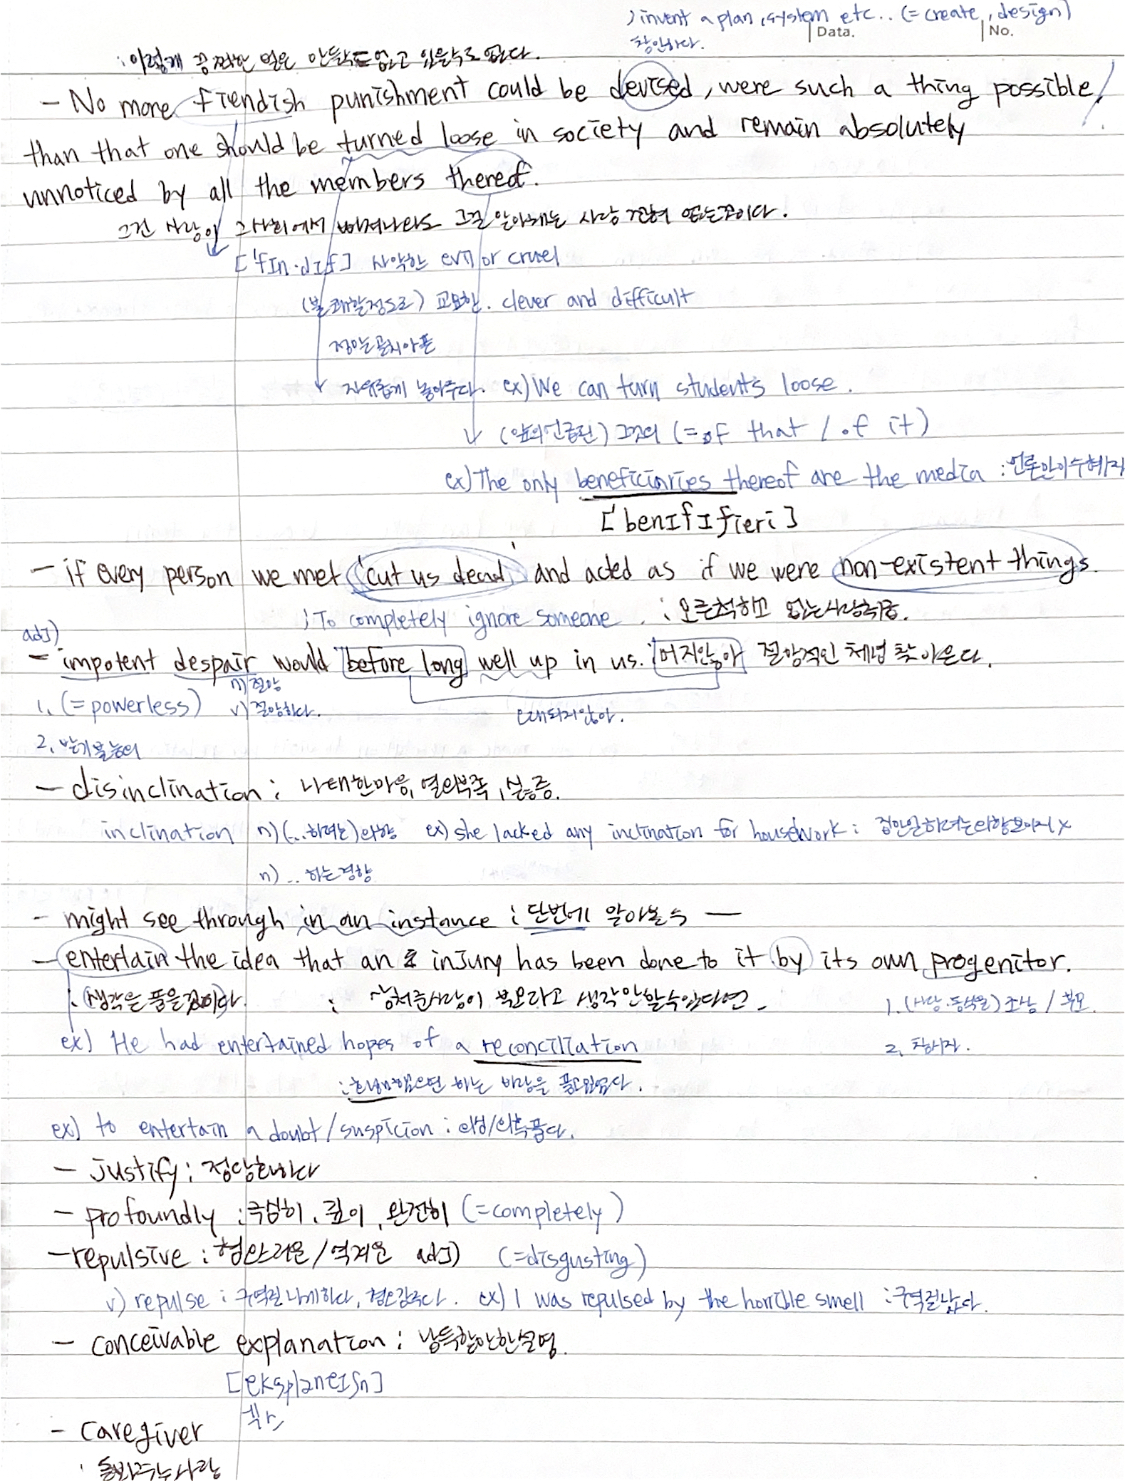 ) invent a plan, system etc.. (= create, design)
창안하다.
Data.
No.
: 이렇게 끔찍한 벌은 만들 도 없고 있을수도 없다.
- No more fiendish punishment could be devised, were such a thing possible,
than that one should be turned loose in society and remain absolutely
unnoticed by all the members thereof.
그건 사람이 그사회에서 벗어나라도 그걸 알아채는 사람 전혀 없는것이다.
['fIn·dIʃ] 사악한 evil or cruel
(불쾌할정도로) 교묘한. clever and difficult
정말 골치아픈
자유롭게 놓아주다. ex) We can turn students loose.
(앞의 언급된) 그것의 (= of that / of it)
ex) The only beneficiaries thereof are the media : 언론만이 수혜자
['benIfIʃieri]
- if every person we met 'cut us dead' and acted as if we were non-existent things.
; To completely ignore someone. : 모른척하고 없는사람취급.
adj)
- impotent despair would before long well up in us. : 머지않아 절망적인 체념 찾아온다.
n) 절망
1. (= powerless) v) 절망하다.
오래되지않아.
2. 발기불능의
- disinclination : 나태한마음, 열의부족, 싫증.
inclination n) (..하려는) 의향 ex) she lacked any inclination for housework : 집안일하려는의향보이지 x
n) .. 하는경향
- might see through in an instance : 단번에 알아볼수 —
- entertain the idea that an injury has been done to it by its own progenitor.
: (생각을 품을것이다) : 상처준사람이 부모라고 생각안할수있다면 -
1. (사람·동식물) 조상 / 부모
ex) He had entertained hopes of a reconciliation
2. 창시자.
: 화해했으면 하는 바람을 품고있었다.
ex) to entertain a doubt/suspicion : 의심/의혹품다.
- justify : 정당화하다
- profoundly : 극심히, 깊이, 완전히 (= completely)
- repulsive : 혐오스러운 / 역겨운 adj) (= disgusting)
v) repulse : 구역질나게하다, 혐오감주다. ex) I was repulsed by the horrible smell : 구역질났다.
- conceivable explanation : 납득할만한설명.
[ekspləneIʃn]
- caregiver
: 돌봐주는사람